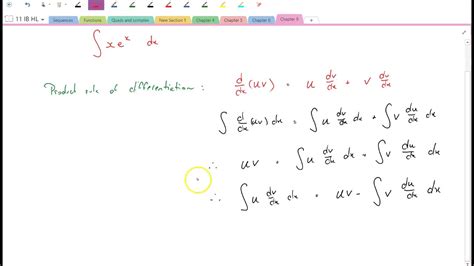 11 IB HL
Sequences Functions Quads and Limits New Section 9 Chapter 4 Chapter 5 Chapter 6 Chapter 9
∫ x eˣ dx
Product rule of differentiation : d/dx (uv) = u dv/dx + v du/dx
∫ d/dx (uv) dx = ∫ u dv/dx dx + ∫ v du/dx dx
∴ uv = ∫ u dv/dx dx + ∫ v du/dx dx
∴ ∫ u dv/dx dx = uv - ∫ v du/dx dx